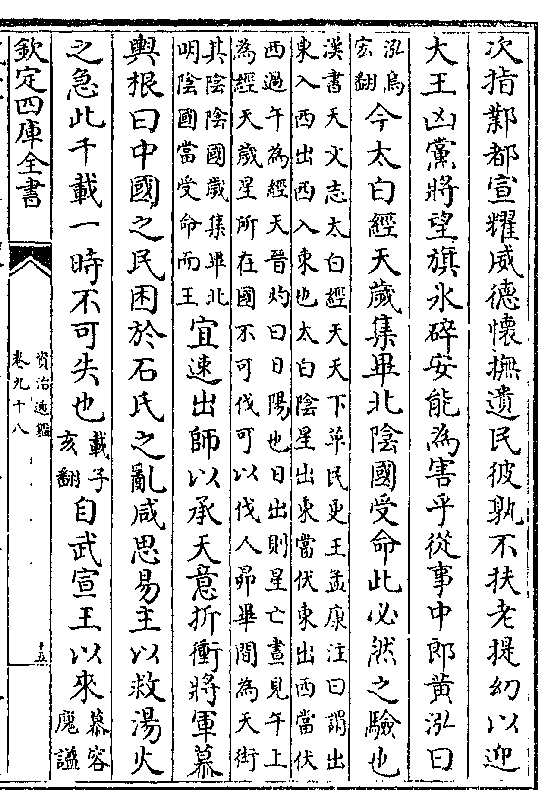 次指鄴都宣耀威德懷撫遺民彼孰不扶老提幼以迎
大王凶黨將望旗氷碎安能為害乎從事中郎黃泓曰
泓烏宏翻今太白經天歲集畢北陰國受命此必然之驗也
漢書天文志太白經天天下革民更王孟康注曰謂出
東入西出西入東也太白陰星出東當伏東出西當伏
西過午為經天晉灼曰日陽也日出則星亡晝見午上
為經天歲星所在國不可伐可以伐人昴畢間為天街
其陰陰國歲集畢北明陰國當受命而王宜速出師以承天意折衝將軍慕
輿根曰中國之民困於石氏之亂咸思易主以救湯火
之急此千載一時不可失也載子亥翻自武宣王以來慕容廆諡
欽定四庫全書
資治通鑑
卷九十八
十五